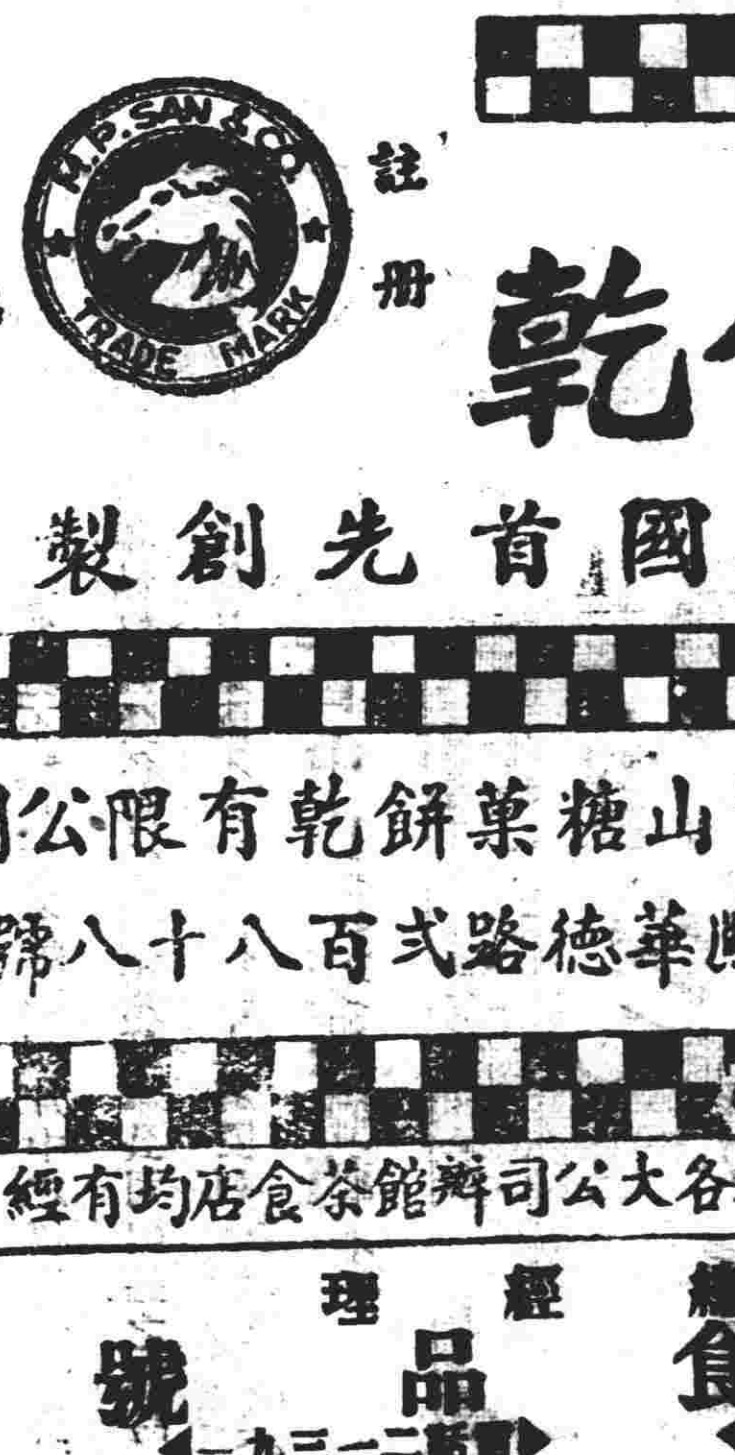 M.P. SAN & CO.
TRADE MARK
註册
乾
國首先創製
山糖菓餅乾有限公
華德路弍百八十八號
各大公司辦館茶食店均有經
經理
食品號